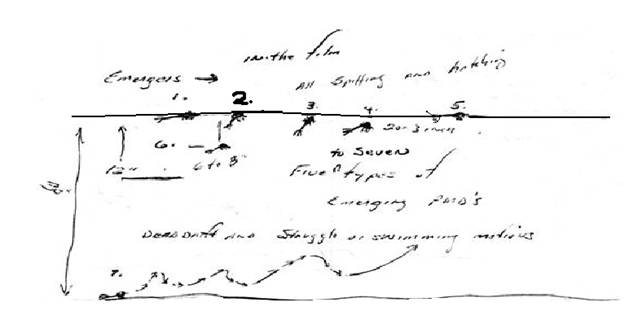 in the film
Emergers →
All Splitting and Hatching
1. 2. 3. 4. 5.
2 or 3 inch
6. 6 to 8"
12"
to Seven
Five ^ types of
Emerging PMD's
Dead Drift and Struggle or swimming motions
7.